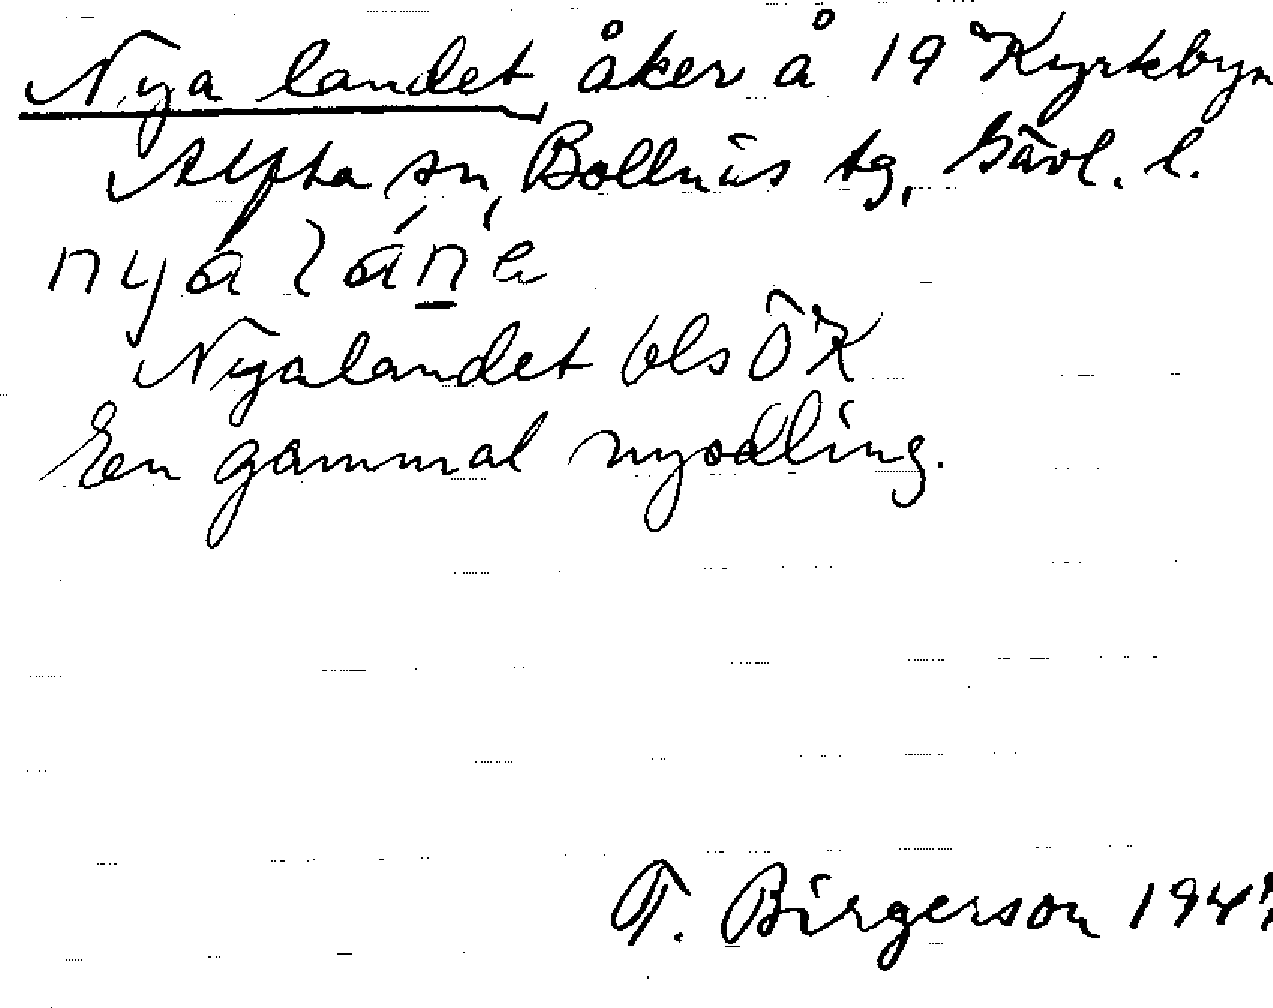 Nya landet, åker å 19 Kyrkbyn
Alfta sn, Bollnäs tg, Gävl. l.
Nyalandet bls ÖK
En gammal nyodling.
T. Birgerson